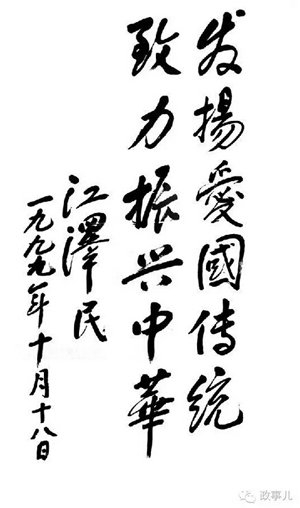 发揚愛國傳統
致力振兴中華
江澤民
一九九九年十月十八日
政事儿